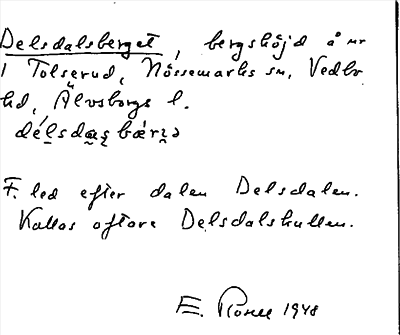 Delsdalsberget, bergshöjd å nr
1 Tolserud, Nössemarks sn, Vedbo
hd, Älvsborgs l.
F. led efter dalen Delsdalen.
Kallas oftare Delsdalskullen.
E. 1948